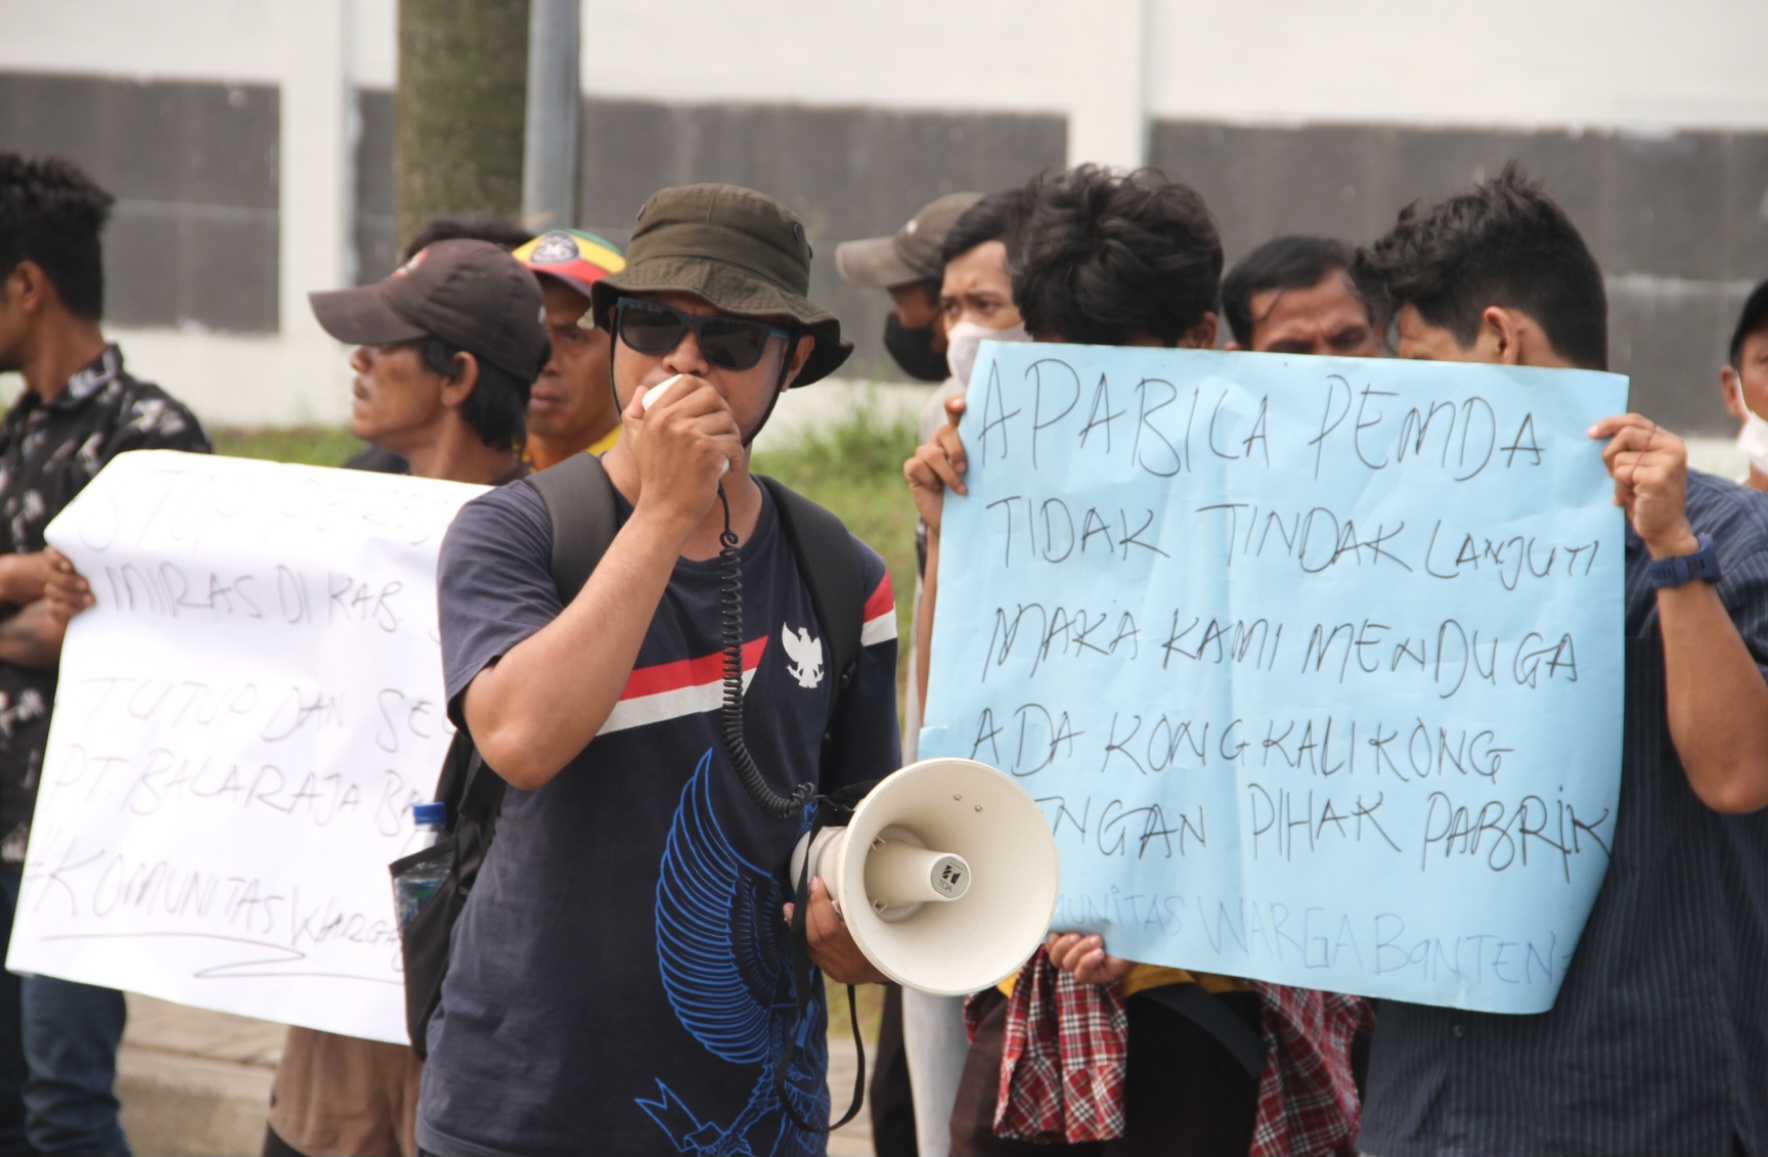 STOP
MIRAS DI KAB
TUTUP DAN
PT BALARAJA
#KOMUNITAS WARGA
APABILA PEMDA
TIDAK TINDAK LANJUTI
MAKA KAMI MENDUGA
ADA KONGKALIKONG
NGAN PIHAK PABRIK
UNITAS WARGA BANTEN
TOA